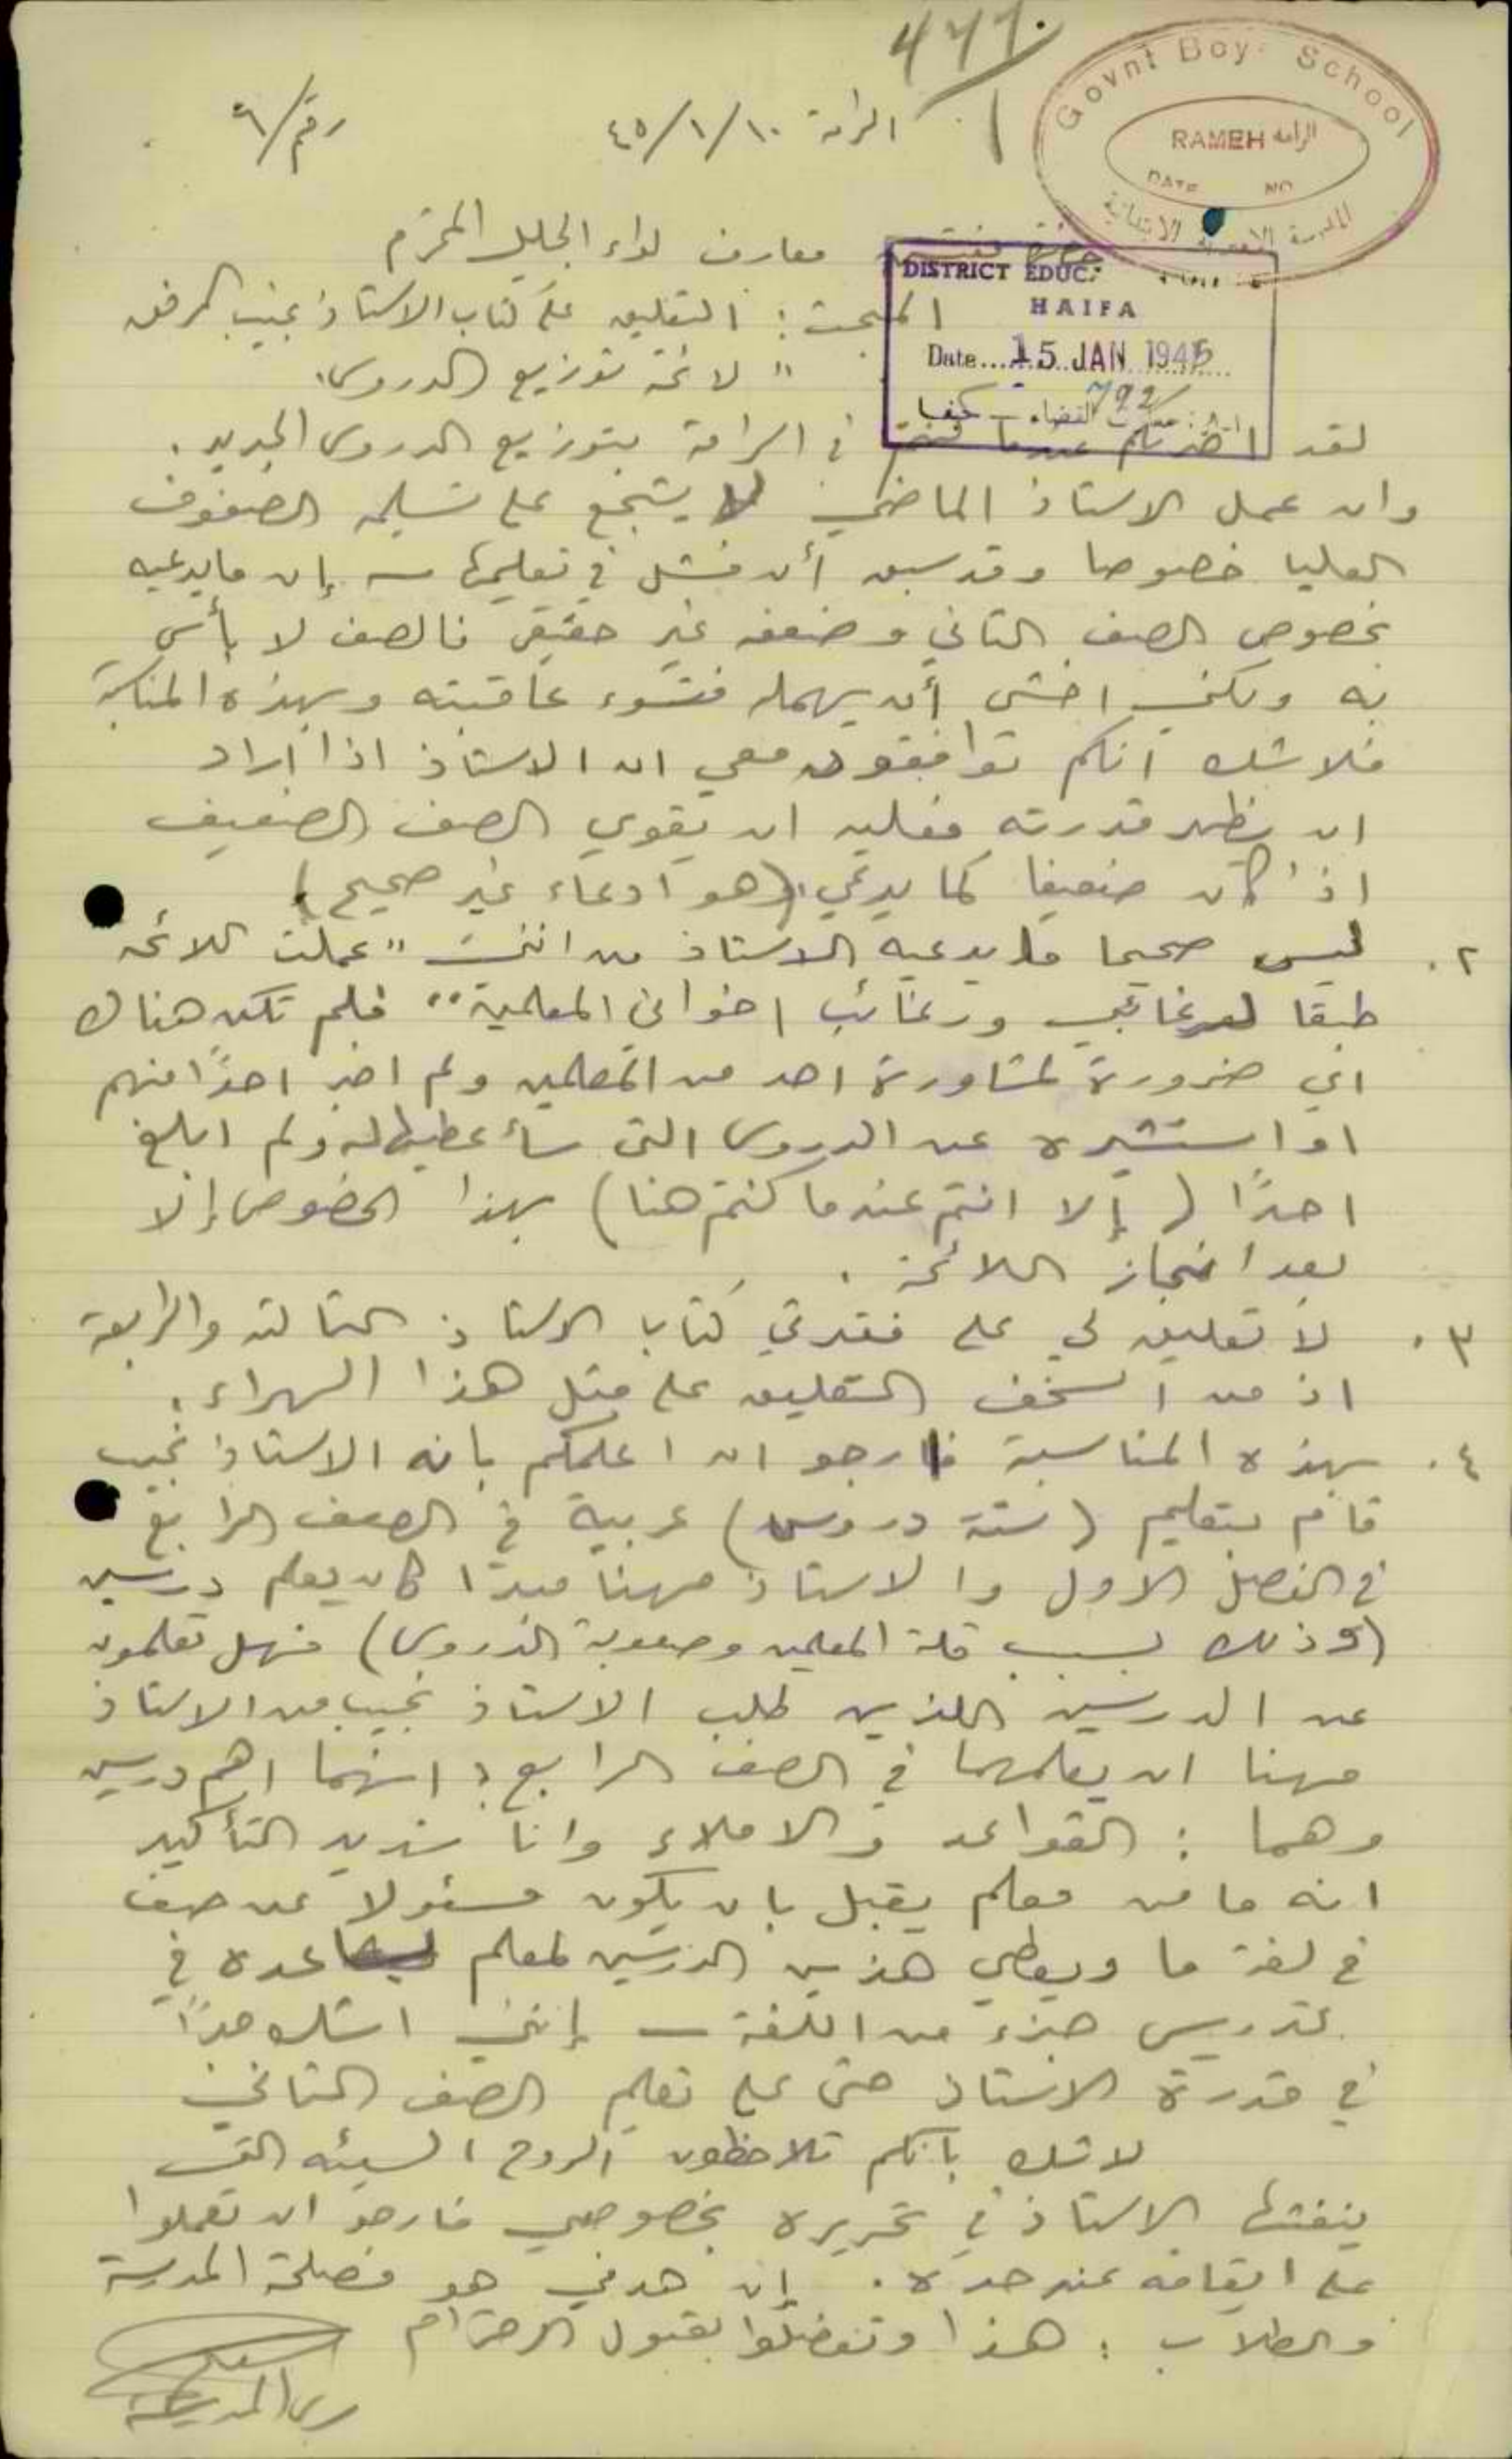 Govnt Boys School
RAMEH الرامة
DATE NO
المدرسة الاميرية الابتدائية
الرامة ١٠/١/٤٥
رقم/٦
حضرة مفتش معارف لواء الجليل المحترم
DISTRICT EDUC.
HAIFA
Date....15 JAN 1945
792
المبحث: التعليق على كتاب الاستاذ نجيب المرفق
" لائحة توزيع الدروس"
لقد اخبرتكم عندما كنتم في الرامة بتوزيع الدروس الجديد.
وان عمل الاستاذ الماضي لا يشجع على تسليمه الصفوف
العليا خصوصا وقد سبق أن فشل في تعليمها – إن ما يدعيه
بخصوص الصف الثاني وضعفه غير حقيقي فالصف لا بأس
به ولكني اخشى أن يهمله فتسوء عاقبته وبهذه المناسبة
فلا شك انكم توافقون معي ان الاستاذ اذا اراد
ان يظهر قدرته فعليه ان يقوي الصف الضعيف
اذا كان ضعيفا كما يدعي (هو ادعاء غير صحيح)
٢. ليس صحيحا ما يدعيه الاستاذ من انني "عملت اللائحة
طبقا لرغائبي ورغائب اخواني المعلمين" فلم تكن هناك
اي ضرورة لمشاورة احد من المعلمين ولم اخبر احدًا منهم
او استشيره عن الدروس التي سأعطيها له ولم ابلغ
احدًا (إلا انتم عندما كنتم هنا) بهذا الخصوص إلا
بعد انجاز اللائحة.
٣. لا تعليق لي على فقرتي كتاب الاستاذ الثالثة والرابعة
اذ من السخف التعليق على مثل هذا الهراء.
٤. بهذه المناسبة فارجو ان اعلمكم بانه الاستاذ نجيب
قام بتعليم (ستة دروس) عربية في الصف الرابع
في الفصل الاول والاستاذ مهنا مبدا كان يعلم درسين
(وذلك بسبب قلة المعلمين وصعوبة الدروس) فهل تعلمون
عن الدرسين اللذين طلب الاستاذ نجيب من الاستاذ
مهنا ان يعلمهما في الصف الرابع؟ انهما اهم درسين
وهما: القواعد والاملاء وانا شديد التأكيد
انه ما من معلم يقبل بان يكون مسئولا عن صف
في لغة ما ويعطي هذين الدرسين لمعلم ليساعده في
تدريس جزء من اللغة – إنني اشك جدًا
في قدرة الاستاذ حتى على تعليم الصف الثاني
لا شك بانكم تلاحظون الروح السيئه التي
ينفثها الاستاذ في تحريره بخصوصي فارجو ان تعملوا
على ايقافه عند حده. إن هدفي هو مصلحة المدرسة
والطلاب: هذا وتفضلوا بقبول الاحترام